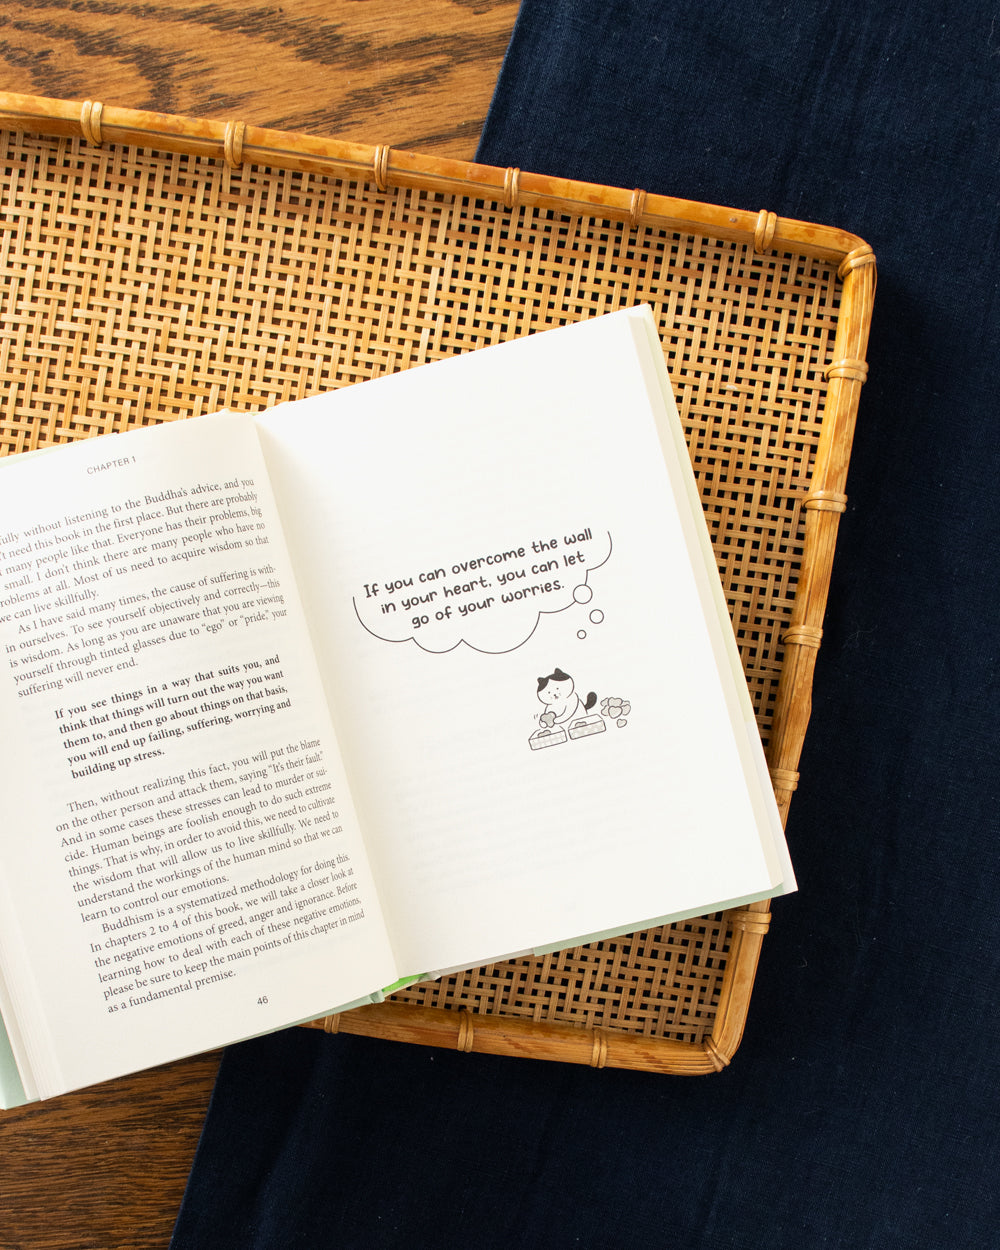 CHAPTER 1
fully without listening to the Buddha's advice, and you
't need this book in the first place. But there are probably
many people like that. Everyone has their problems, big
small. I don't think there are many people who have no
problems at all. Most of us need to acquire wisdom so that
we can live skillfully.
As I have said many times, the cause of suffering is with-
in ourselves. To see yourself objectively and correctly—this
is wisdom. As long as you are unaware that you are viewing
yourself through tinted glasses due to "ego" or "pride," your
suffering will never end.
If you see things in a way that suits you, and
think that things will turn out the way you want
them to, and then go about things on that basis,
you will end up failing, suffering, worrying and
building up stress.
Then, without realizing this fact, you will put the blame
on the other person and attack them, saying "It's their fault."
And in some cases these stresses can lead to murder or sui-
cide. Human beings are foolish enough to do such extreme
things. That is why, in order to avoid this, we need to cultivate
the wisdom that will allow us to live skillfully. We need to
understand the workings of the human mind so that we can
learn to control our emotions.
Buddhism is a systematized methodology for doing this.
In chapters 2 to 4 of this book, we will take a closer look at
the negative emotions of greed, anger and ignorance. Before
learning how to deal with each of these negative emotions,
please be sure to keep the main points of this chapter in mind
as a fundamental premise.
46
If you can overcome the wall
in your heart, you can let
go of your worries.